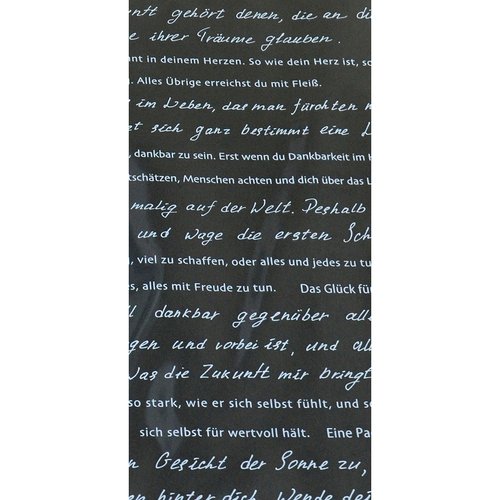 nft gehört denen, die an di
e ihrer Träume glauben.
nt in deinem Herzen. So wie dein Herz ist, so
. Alles Übrige erreichst du mit Fleiß.
im Leben, das man fürchten m
et sich ganz bestimmt eine
, dankbar zu sein. Erst wenn du Dankbarkeit im H
tschätzen, Menschen achten und dich über das L
malig auf der Welt. Deshalb
und wage die ersten Sch
, viel zu schaffen, oder alles und jedes zu tu
s, alles mit Freude zu tun. Das Glück für
ll dankbar gegenüber all
gen und vorbei ist, und all
Was die Zukunft mir bringt
so stark, wie er sich selbst fühlt, und so
sich selbst für wertvoll hält. Eine Pa
n Gesicht der Sonne zu,
en hinter dich. Wende dei